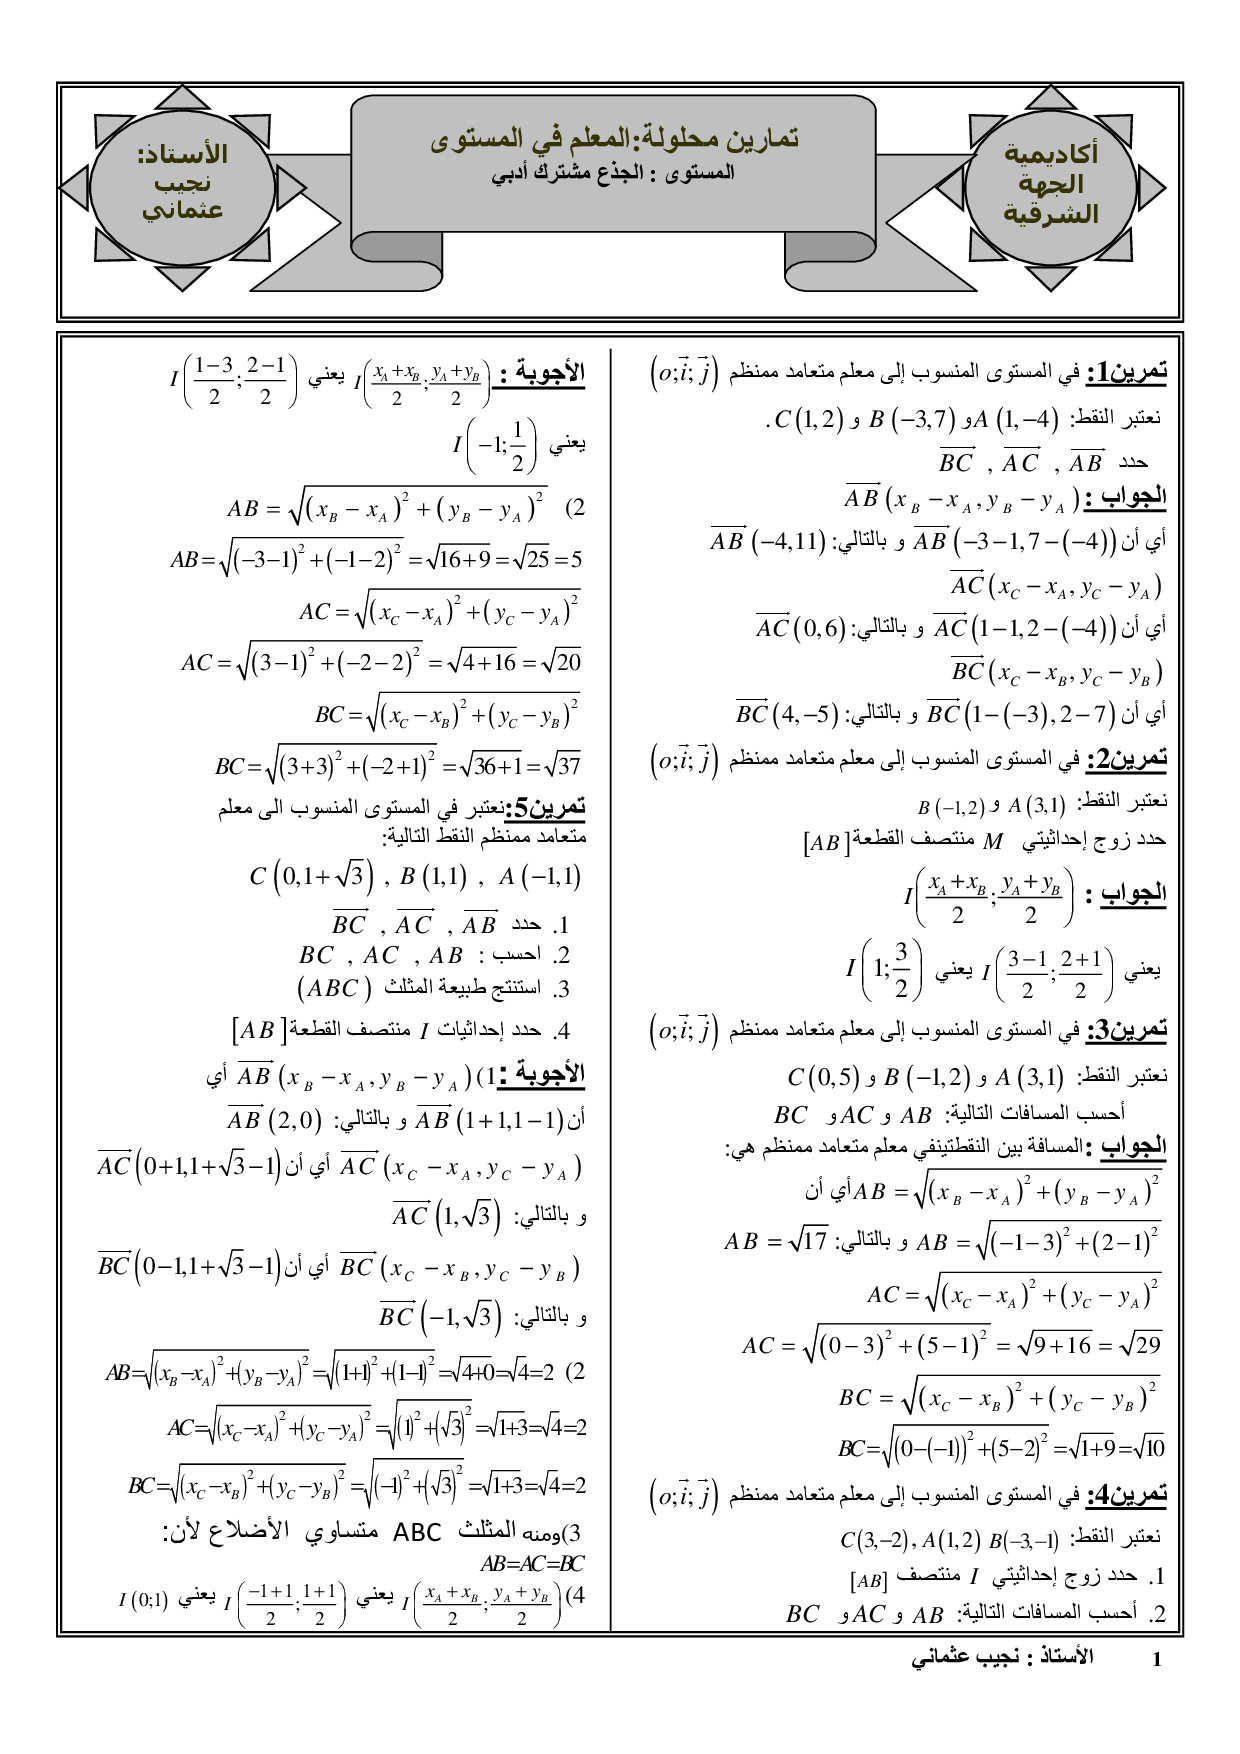 أكاديمية
الجهة
الشرقية
تمارين محلولة:المعلم في المستوى
المستوى : الجذع مشترك أدبي
الأستاذ:
نجيب
عثماني
تمرين1: في المستوى المنسوب إلى معلم متعامد ممنظم (o;i⃗;j⃗)
نعتبر النقط: A(1,−4) و B(−3,7) و C(1,2).
حدد AB⃗ , AC⃗ , BC⃗
الجواب : AB⃗(x_B − x_A, y_B − y_A)
أي أن AB⃗(−3−1,7−(−4)) و بالتالي: AB⃗(−4,11)
AC⃗(x_C − x_A, y_C − y_A)
أي أن AC⃗(1−1,2−(−4)) و بالتالي: AC⃗(0,6)
BC⃗(x_C − x_B, y_C − y_B)
أي أن BC⃗(1−(−3),2−7) و بالتالي: BC⃗(4,−5)
تمرين2: في المستوى المنسوب إلى معلم متعامد ممنظم (o;i⃗;j⃗)
نعتبر النقط: A(3,1) و B(−1,2)
حدد زوج إحداثيتي M منتصف القطعة [AB]
الجواب : I((x_A+x_B)/2;(y_A+y_B)/2)
يعني I((3−1)/2;(2+1)/2) يعني I(1;3/2)
تمرين3: في المستوى المنسوب إلى معلم متعامد ممنظم (o;i⃗;j⃗)
نعتبر النقط: A(3,1) و B(−1,2) و C(0,5)
أحسب المسافات التالية: AB و AC و BC
الجواب :المسافة بين النقطتينفي معلم متعامد ممنظم هي:
AB = √((x_B − x_A)² + (y_B − y_A)²) أي أن
AB = √((−1−3)² + (2−1)²) و بالتالي: AB = √17
AC = √((x_C − x_A)² + (y_C − y_A)²)
AC = √((0−3)² + (5−1)²) = √9+16 = √29
BC = √((x_C − x_B)² + (y_C − y_B)²)
BC=√((0−(−1))²+(5−2)²)=√1+9=√10
تمرين4: في المستوى المنسوب إلى معلم متعامد ممنظم (o;i⃗;j⃗)
نعتبر النقط: B(−3,−1) A(1,2) , C(3,−2)
1. حدد زوج إحداثيتي I منتصف [AB]
2. أحسب المسافات التالية: AB و AC و BC
الأجوبة : I((x_A+x_B)/2;(y_A+y_B)/2) يعني I((1−3)/2;(2−1)/2)
يعني I(−1;1/2)
2) AB = √((x_B − x_A)² + (y_B − y_A)²)
AB=√((−3−1)²+(−1−2)²)=√16+9=√25=5
AC = √((x_C − x_A)² + (y_C − y_A)²)
AC = √((3−1)² + (−2−2)²) = √4+16 = √20
BC = √((x_C − x_B)² + (y_C − y_B)²)
BC=√((3+3)²+(−2+1)²)=√36+1=√37
تمرين5:نعتبر في المستوى المنسوب الى معلم
متعامد ممنظم النقط التالية:
A(−1,1) , B(1,1) , C(0,1+√3)
1. حدد AB⃗ , AC⃗ , BC⃗
2. احسب : AB , AC , BC
3. استنتج طبيعة المثلث (ABC)
4. حدد إحداثيات I منتصف القطعة [AB]
الأجوبة :1) AB⃗(x_B − x_A, y_B − y_A) أي
أن AB⃗(1+1,1−1) و بالتالي: AB⃗(2,0)
AC⃗(x_C − x_A, y_C − y_A) أي أن AC⃗(0+1,1+√3−1)
و بالتالي: AC⃗(1,√3)
BC⃗(x_C − x_B, y_C − y_B) أي أن BC⃗(0−1,1+√3−1)
و بالتالي: BC⃗(−1,√3)
2) AB=√((x_B−x_A)²+(y_B−y_A)²)=√((1+1)²+(1−1)²)=√4+0=√4=2
AC=√((x_C−x_A)²+(y_C−y_A)²)=√((1)²+(√3)²)=√1+3=√4=2
BC=√((x_C−x_B)²+(y_C−y_B)²)=√((−1)²+(√3)²)=√1+3=√4=2
3)ومنه المثلث ABC متساوي الأضلاع لأن:
AB=AC=BC
4) I((x_A+x_B)/2;(y_A+y_B)/2) يعني I((−1+1)/2;(1+1)/2) يعني I(0;1)
الأستاذ : نجيب عثماني 1